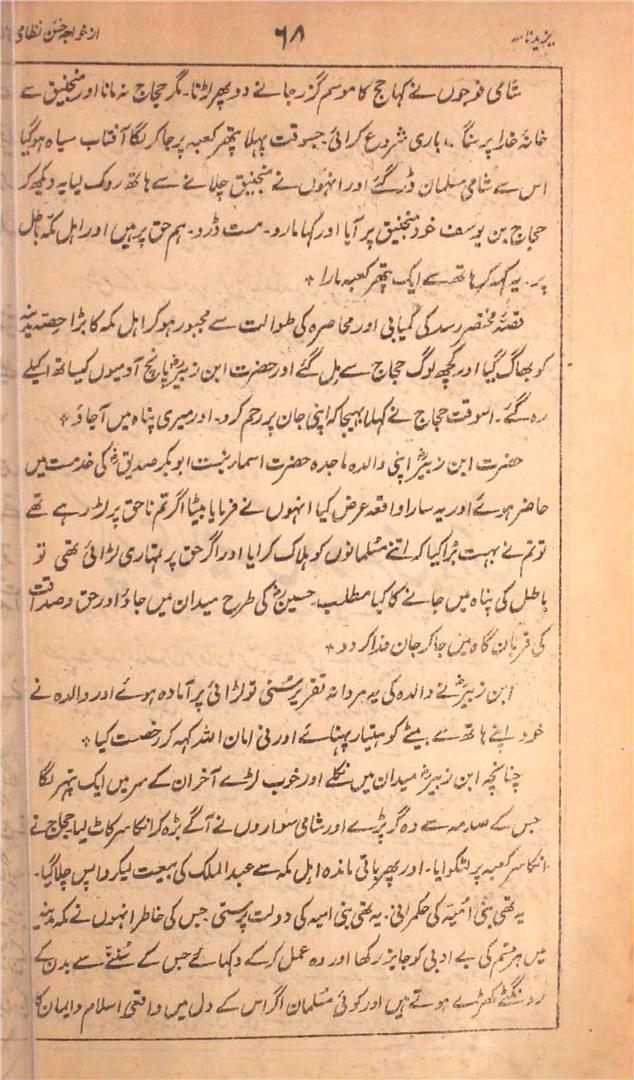 یزیدنامہ ۶۸ از خواجہ حسن نظامی
شامی فوجوں نے کہا حج کا موسم گذر جانے دو پھر لڑنا۔ مگر حجاج نہ مانا اور منجنیق سے
خانۂ خدا پر سنگ باری شروع کرائی۔ جسوقت پہلا پتھر کعبہ پر جا کر لگا آفتاب سیاہ ہو گیا
اس سے شامی مسلمان ڈر گئے اور انہوں نے منجنیق چلانے سے ہاتھ روک لیا یہ دیکھ کر
حجاج بن یوسف خود منجنیق پر آیا اور کہا مارو۔ مت ڈرو۔ ہم حق پر ہیں اور اہل مکہ باطل
پر۔ یہ کہہ کر ہاتھ سے ایک پتھر کعبہ مارا *
قصّہ مختصر رسد کی کمیابی اور محاصرہ کی طوالت سے مجبور ہو کر اہل مکہ کا بڑا حصہ مدینہ
کو بھاگ گیا اور کچھ لوگ حجاج سے مل گئے اور حضرت ابن زبیرؓ پانچ آدمیوں کیساتھ اکیلے
رہ گئے۔ اسوقت حجاج نے کہلا بھیجا کہ اپنی جان پر رحم کرو۔ اور میری پناہ میں آجاؤ *
حضرت ابن زبیرؓ اپنی والدہ ماجدہ حضرت اسمار بنت ابوبکر صدیقؓ کی خدمت میں
حاضر ہوئے اور یہ سارا واقعہ عرض کیا انہوں نے فرمایا بیٹا اگر تم ناحق پر لڑ رہے تھے
تو تم نے بہت بُرا کیا کہ اتنے مسلمانوں کو ہلاک کرایا اور اگر حق پر تمہاری لڑائی تھی تو
باطل کی پناہ میں جانے کا کیا مطلب۔ حسینؓ کی طرح میدان میں جاؤ اور حق و صداقت
کی قربان گاہ میں جا کر جان فدا کر دو *
ابن زبیرؓ نے والدہ کی یہ مردانہ تقریر سُنی تو لڑائی پر آمادہ ہوئے اور والدہ نے
خود اپنے ہاتھ سے بیٹے کو ہتیار پہنائے اور فی امان اللہ کہہ کر رخصت کیا *
چنانچہ ابن زبیرؓ میدان میں نکلے اور خوب لڑے آخر ان کے سر میں ایک پتھر لگا
جس کے صدمہ سے وہ گر پڑے اور شامی سواروں نے آگے بڑہ کر انکا سر کاٹ لیا۔ حجاج نے
انکا سر کعبہ پر لٹکوایا۔ اور پھر باقی ماندہ اہل مکہ سے عبد الملک کی بیعت لیکر واپس چلا گیا۔
یہ تھی بنی اُمیّہ کی حکمرانی۔ یہ تھی بنی امیہ کی دولت پرستی جس کی خاطر انہوں نے مکہ مدینہ
میں ہر قسم کی بے ادبی کو جایز رکھا اور وہ عمل کر کے دکہائے جس کے سُننے سے بدن کے
رونگٹے کھڑے ہوتے ہیں اور کوئی مسلمان اگر اس کے دل میں واقعی اسلام و ایمان کا